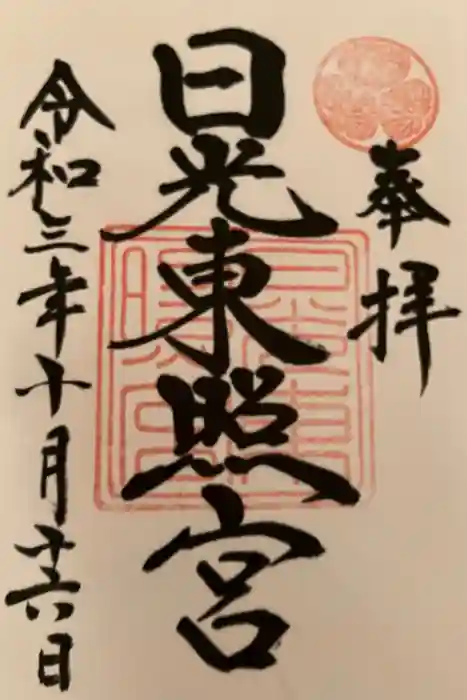 奉拝
日光東照宮
令和三年十月廿六日